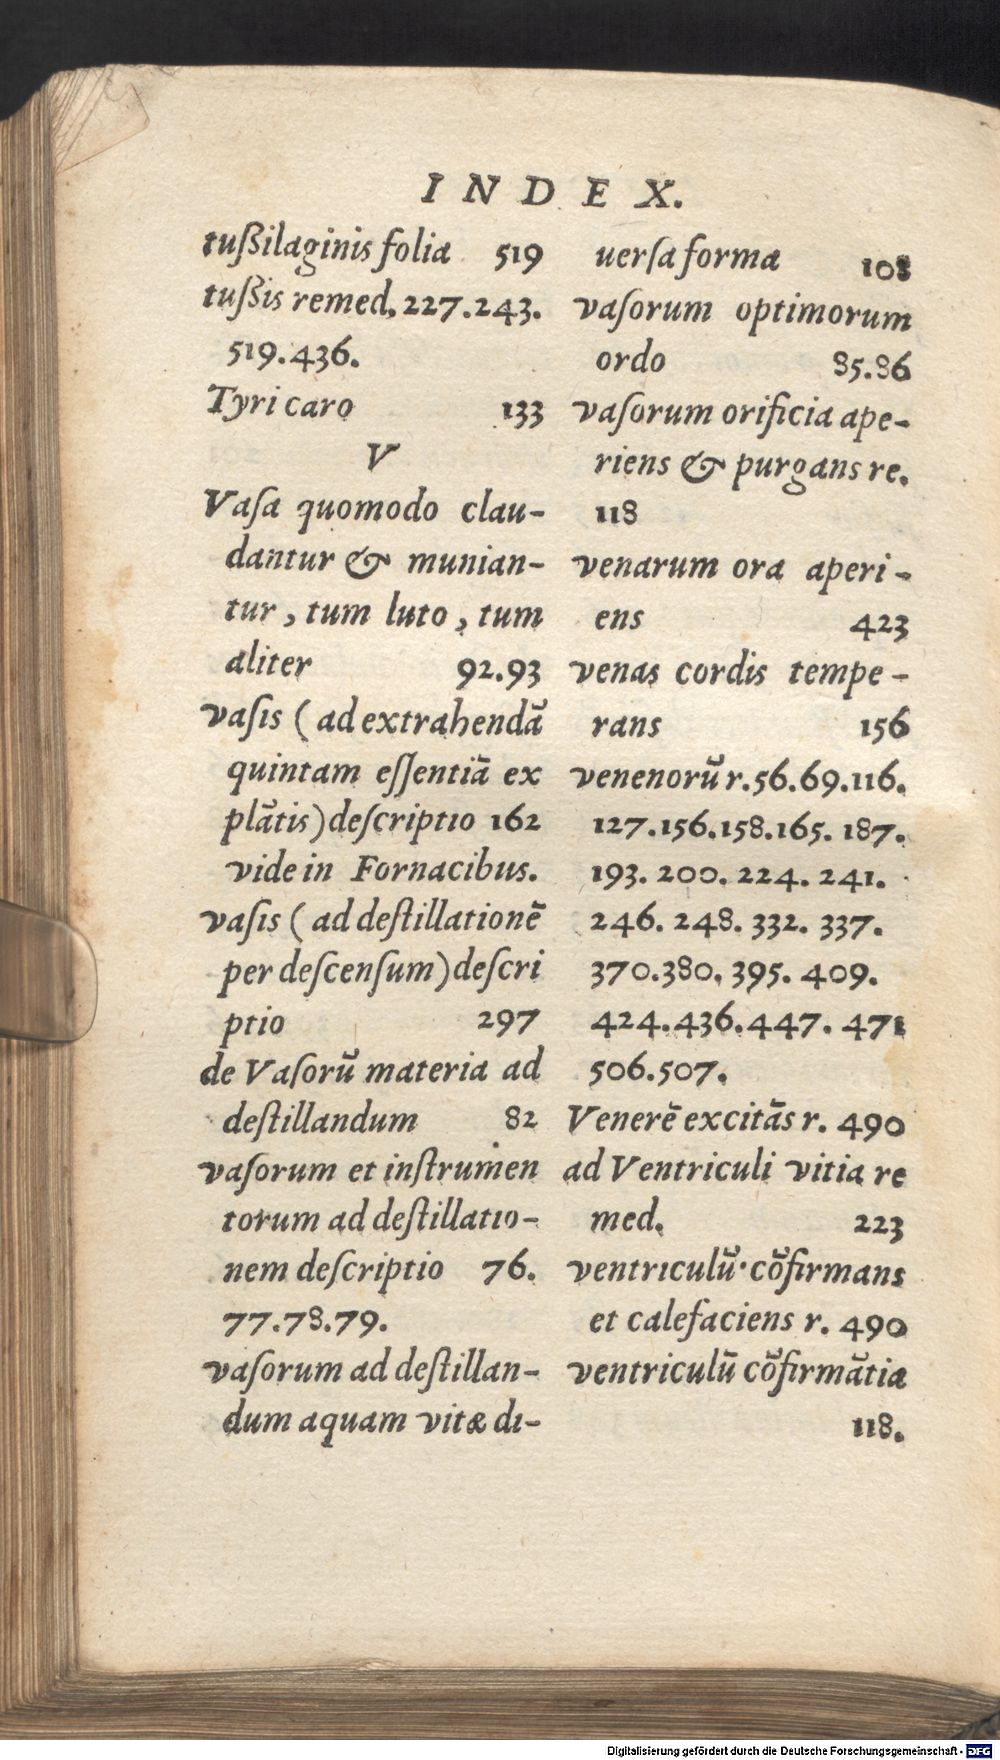 INDEX.
tußilaginis folia 519
tußis remed. 227.243.
519.436.
Tyri caro 133
V
Vaſa quomodo clau-
dantur & munian-
tur, tum luto, tum
aliter 92.93
vaſis (ad extrahendã
quintam eſſentiã ex
plãtis) deſcriptio 162
vide in Fornacibus.
vaſis (ad deſtillationẽ
per deſcenſum) deſcri
ptio 297
de Vaſorũ materia ad
deſtillandum 82
vaſorum et inſtrumen
torum ad deſtillatio-
nem deſcriptio 76.
77.78.79.
vaſorum ad deſtillan-
dum aquam vitæ di-
uerſa forma 108
vaſorum optimorum
ordo 85.86
vaſorum orificia ape-
riens & purgans re.
118
venarum ora aperi-
ens 423
venas cordis tempe-
rans 156
venenorũ r. 56.69.116.
127.156.158.165. 187.
193. 200. 224. 241.
246. 248. 332. 337.
370.380. 395. 409.
424.436.447. 471
506.507.
Venerẽ excitãs r. 490
ad Ventriculi vitia re
med. 223
ventriculũ cõfirmans
et calefaciens r. 490
ventriculũ cõfirmãtia
118.
Digitalisierung gefördert durch die Deutsche Forschungsgemeinschaft - DFG